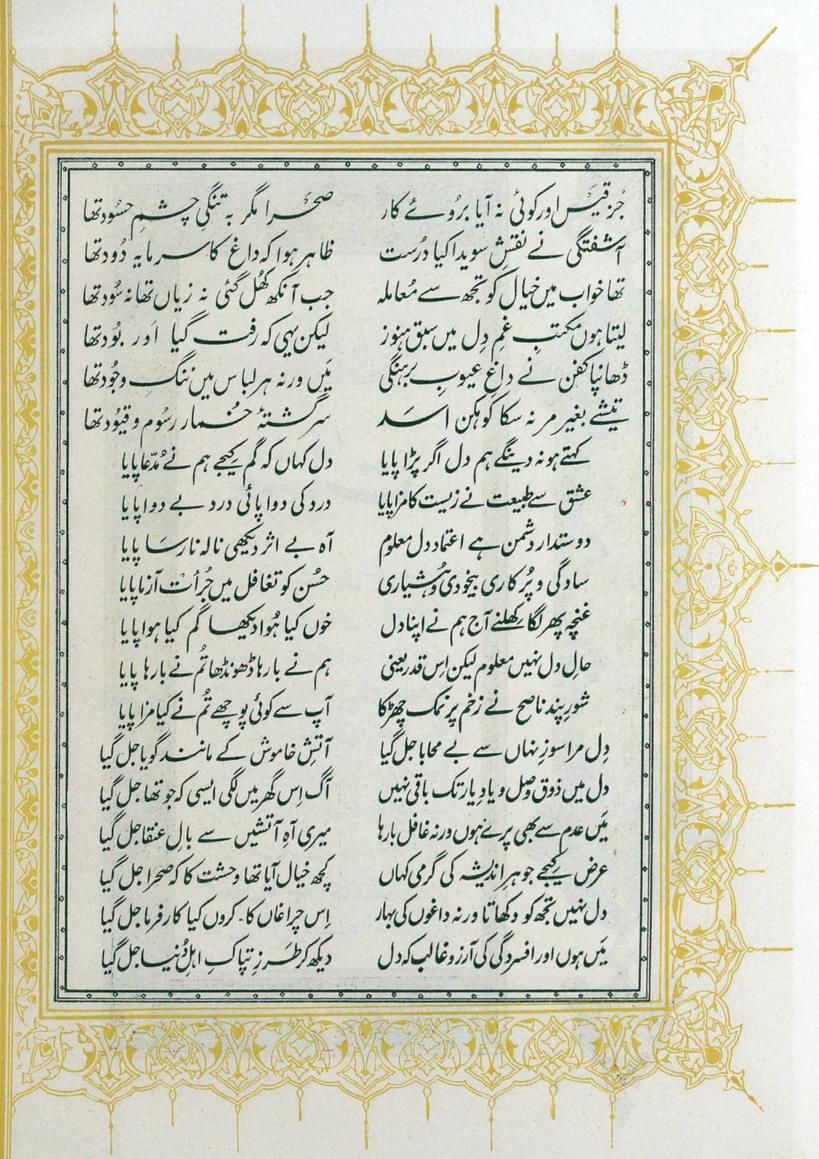 جُز قیس اور کوئی نہ آیا بروئے کار صحرا مگر بہ تنگیِ چشمِ حسُود تھا
آشفتگی نے نقشِ سویدا کیا دُرست ظاہر ہوا کہ داغ کا سرمایہ دُود تھا
تھا خواب میں خیال کو تجھ سے مُعاملہ جب آنکھ کھُل گئی نہ زیاں تھا نہ سُود تھا
لیتا ہوں مکتبِ غمِ دِل میں سبق ہنوز لیکن یہی کہ رفت گیا اور بُود تھا
ڈھانپا کفن نے داغِ عیوبِ برہنگی مَیں ورنہ ہر لباس میں ننگِ وجُود تھا
تیشے بغیر مر نہ سکا کوہکن اسد سرگشتۂ خُمارِ رسُوم و قیُود تھا
کہتے ہو نہ دینگے ہم دل اگر پڑا پایا دل کہاں کہ گم کیجے ہم نے مُدّعا پایا
عشق سے طبیعت نے زیست کا مزا پایا درد کی دوا پائی درد بے دوا پایا
دوستدار دشمن ہے اعتماد دل معلوم آہ بے اثر دیکھی نالہ نارسا پایا
سادگی و پُرکاری بیخودی و ہُشیاری حُسن کو تغافل میں جُرأت آزما پایا
غنچہ پھر لگا کھلنے آج ہم نے اپنا دل خوں کیا ہُوا دیکھا گم کیا ہوا پایا
حالِ دل نہیں معلوم لیکن اِس قدر یعنی ہم نے بارہا ڈھونڈھا تُم نے بارہا پایا
شورِ پند ناصح نے زخم پر نمک چھڑکا آپ سے کوئی پوچھے تُم نے کیا مزا پایا
دِل مرا سوزِ نہاں سے بے محابا جل گیا آتشِ خاموش کے مانند گویا جل گیا
دل میں ذوقِ وصل و یادِ یار تک باقی نہیں آگ اِس گھر میں لگی ایسی کہ جو تھا جل گیا
مَیں عدم سے بھی پرے ہوں ورنہ غافل بارہا میری آہِ آتشیں سے بالِ عنقا جل گیا
عرض کیجے جوہرِ اندیشہ کی گرمی کہاں کچھ خیال آیا تھا وحشت کا کہ صحرا جل گیا
دل نہیں تجھ کو دکھاتا ورنہ داغوں کی بہار اِس چراغاں کا۔ کروں کیا کارفرما جل گیا
مَیں ہوں اور افسردگی کی آرزو غالب کہ دل دیکھ کر طرزِ تپاکِ اہلِ دُنیا جل گیا